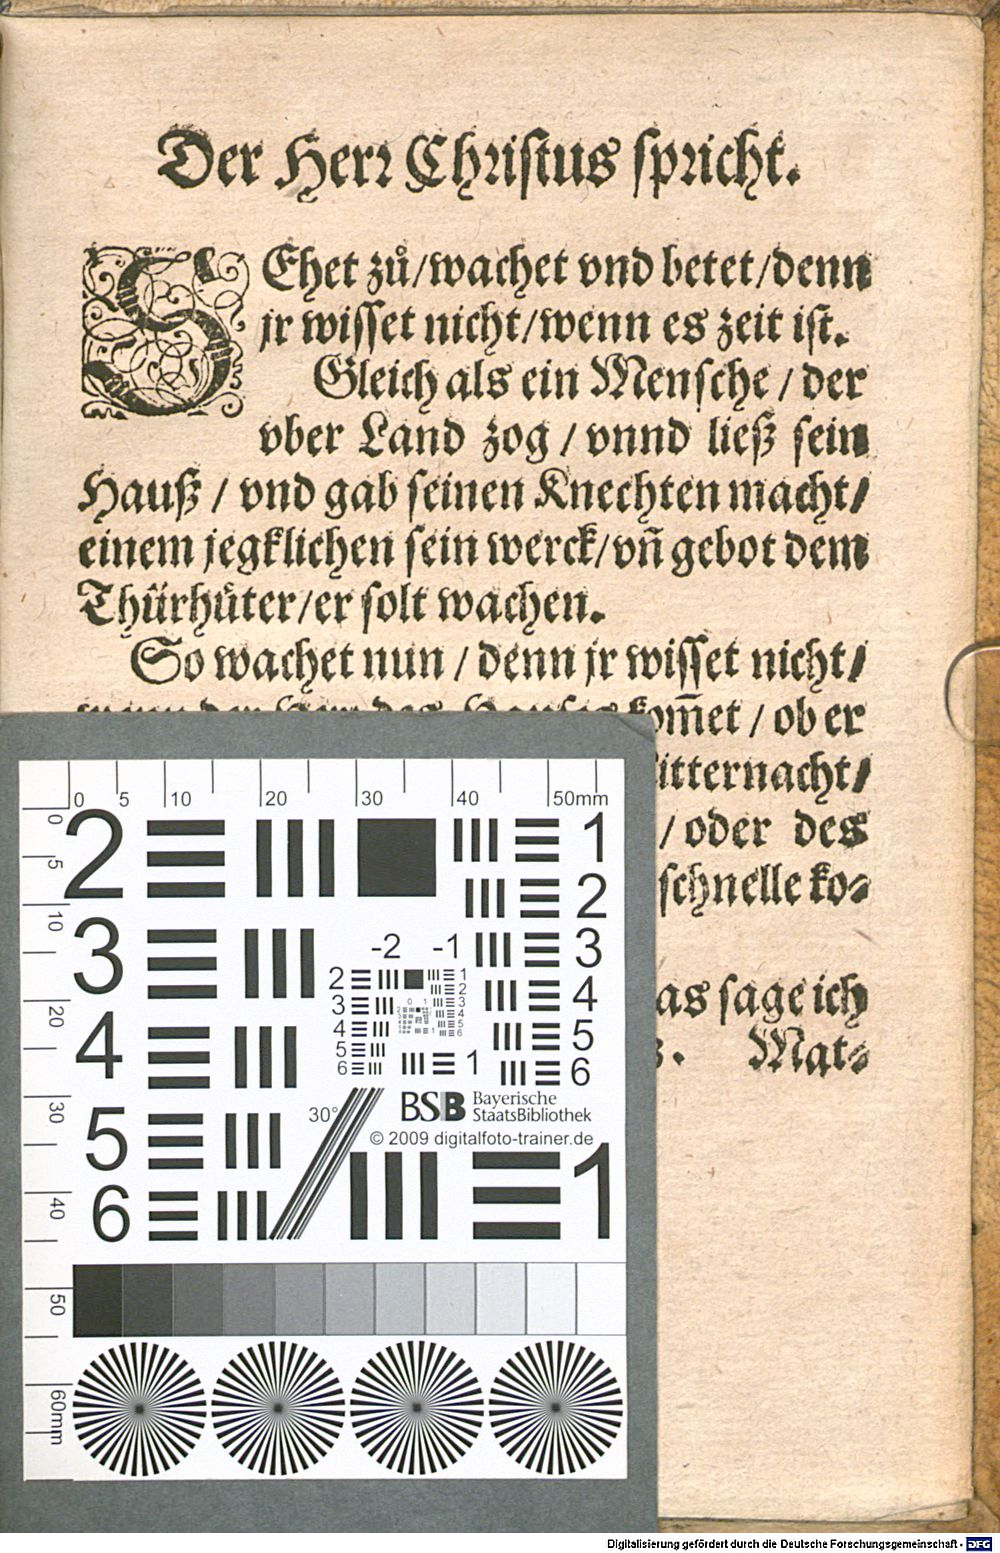 Der Herr Christus spricht.
SEhet zů/wachet vnd betet/denn
jr wisset nicht/wenn es zeit ist.
Gleich als ein Mensche / der
vber Land zog / vnnd ließ sein
Hauß / vnd gab seinen Knechten macht/
einem jegklichen sein werck/vn̄ gebot dem
Thürhüter/er solt wachen.
So wachet nun / denn jr wisset nicht/
kom̄et / ob er
itternacht/
/ oder des
schnelle ko-
as sage ich
Mat-
0 5 10 20 30 40 50mm
0 5 10 20 30 40 50 60mm
2 1
2
3 3
-2 -1
2 1
2
3 3
4 4
5 5
6 6
0 1
4 4
5
1 6
30°
BSB Bayerische
StaatsBibliothek
© 2009 digitalfoto-trainer.de
5
6 1
Digitalisierung gefördert durch die Deutsche Forschungsgemeinschaft - DFG